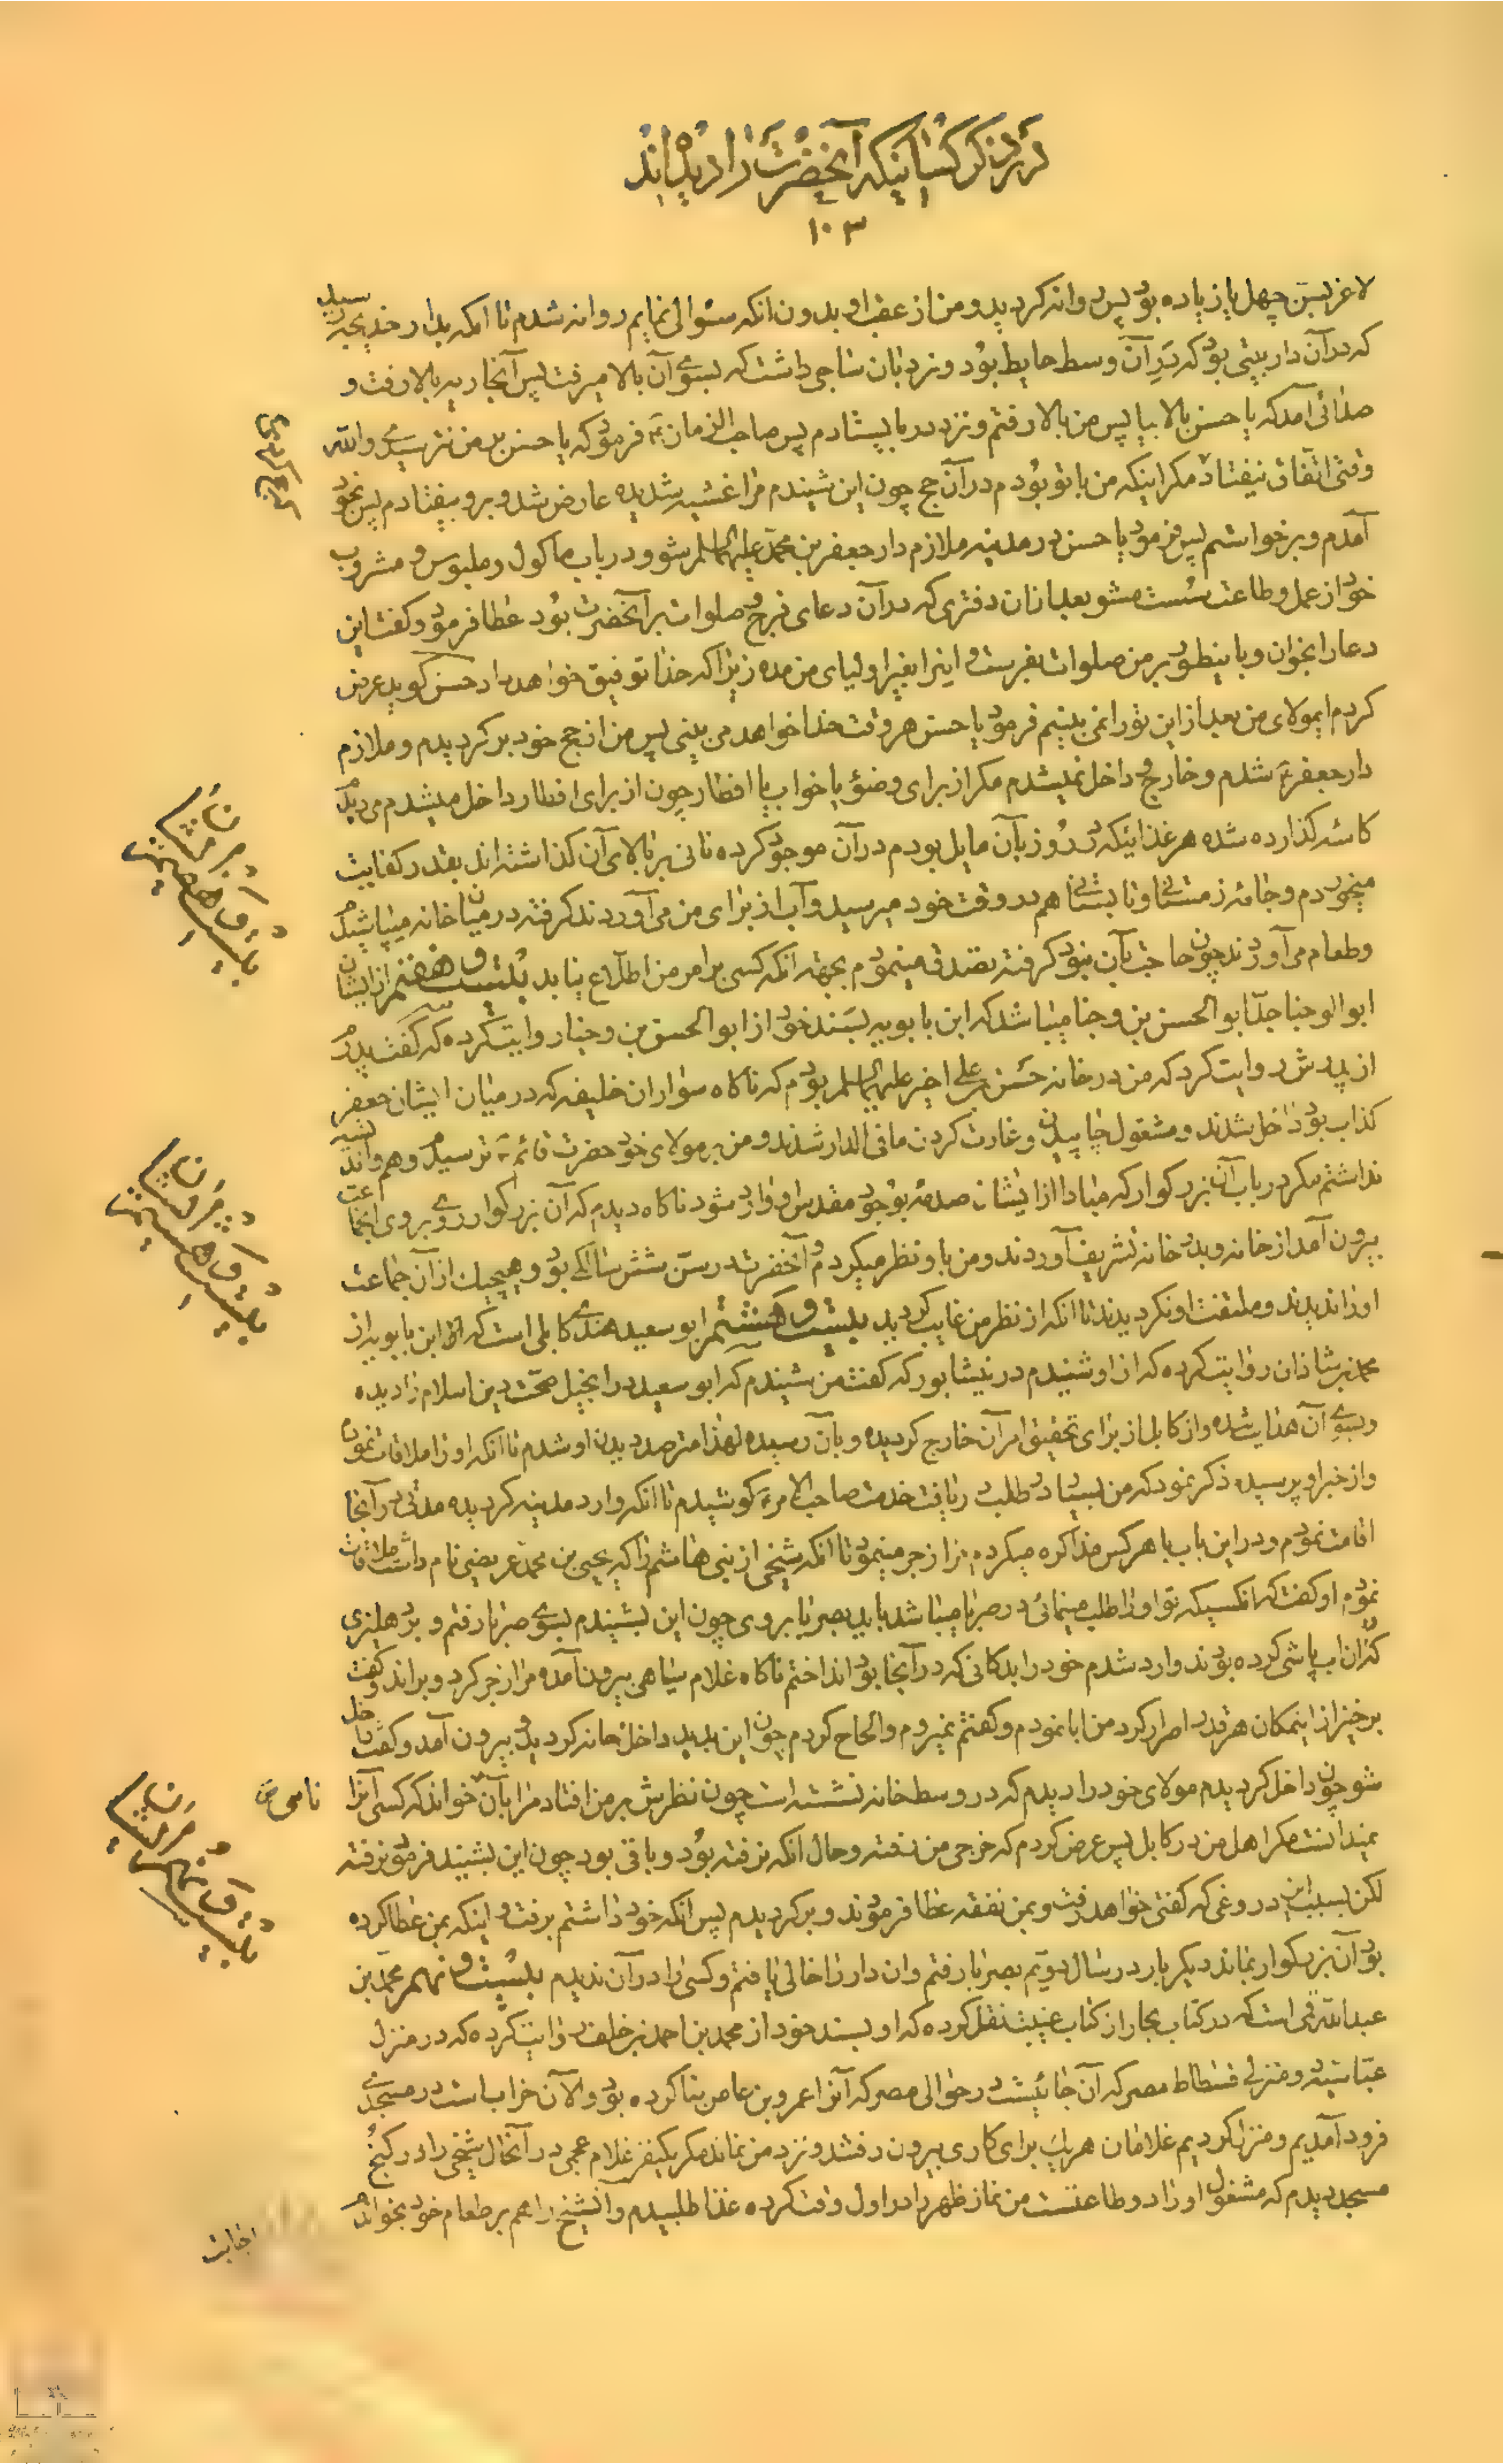 در ذکر کسانیکه آنحضرت را دیده‌اند
۱۰۳
لاغر بسن چهل یا زیاده بود پس روانه کردید و من از عقب او بدون انکه سئوالی نمایم روانه شدم تا انکه بدار خدیجه رسید
که در آن دار بیتی بود که در آن وسط حایط بود و نردبان ساجی داشت که بسوی آن بالا میرفت پس آنجا ریه بالا رفت و
صدائی آمد که یا حسن بالا بیا پس من بالا رفتم و نزد در بایستادم پس صاحب الزمان ع فرمود که یا حسن من والله
وقتی اتفاق نیفتاد مکر اینکه من با تو بودم در آن حج چون این شنیدم مرا غشیه شدیده عارض شد و برو بیفتادم پس بخود
آمدم و برخواستم پس فرمود یا حسن در مدینه ملازم دار جعفر بن محمد علیهما السلم شو و در باب ماکول و ملبوس و مشروب
خود از عمل و طاعت سست مشو بعد ازان دفتری که در آن دعای فرج و صلوات بر آنحضرت بود عطا فرمود و کفت این
دعا را بخوان و باینطور بر من صلوات بفرست و اینرا بغیر اولیای من مده زیرا که خدا توفیق خواهد داد حسن کوید عرض
کردم ایمولای من بعد از این تورا نمی بینیم فرمود یا حسن هر وقت خدا خواهد می بینی پس من از حج خود بر کردیدم و ملازم
دار جعفر ع شدم و خارج و داخل نمیشدم مکر از برای وضو یا خواب یا افطار چون از برای افطار داخل میشدم می دیدم
کاسه کذارده شده هر غذائیکه در روز بآن مایل بودم در آن موجود کرده نانی بر بالای آن کذاشته اند بقدر کفایت
میخوردم و جامه زمستانی و تابستانی هم در وقت خود میرسید و آب از برای من می آوردند کرفته در میان خانه میپاشیدم
و طعام می آوردند چون حاجت بآن نبود کرفته تصدق مینمودم بجهة انکه کسی بر امر من اطلاع نیابد بیست و هفتم از ایشان
ابو الوجنا جد ابو الحسن بن وجنا میباشد که ابن بابویه بسند خود از ابو الحسن بن وجنا روایت کرده که کفت پدرم
از پدرش روایت کرد که من در خانه حسن بن علی اخیر علیهما السلم بودم که ناکاه سواران خلیفه که در میان ایشان جعفر
کذاب بود داخل شدند و مشغول چاپیدن و غارت کردن ما فی الدار شدند و من بر مولای خود حضرت قائم ع ترسیدم و هم و اندیشه
نداشتم مکر در باب آن بزرکوار که مبادا از ایشان صدمه بوجود مقدس او وارد شود ناکاه دیدم که آن بزرکوار روی بروی آنجماعت
بیرون آمد از خانه و بدر خانه تشریف آوردند و من باو نظر میکردم و آنحضرت در سن شش سالکی بود و هیچیک از آن جماعت
او را ندیدند و ملتفت او نکردیدند تا انکه از نظر من غایب کردید بیست و هشتم ابو سعید هندی کابلی است که ابن بابویه از
محمد بن شاذان روایت کرده که از او شنیدم در نیشابور که کفت من شنیدم که ابو سعید در انجیل صحت دین اسلام را دیده
و بسوی آن هدایت شده و از کابل از برای تحقیق امر آن خارج کردیده و بآن رسیده لهذا مترصد دیدن او شدم تا انکه او را ملاقات نموده
و از خبر او پرسیده ذکر نمود که من بسیار در طلب دریافت خدمت صاحب الامر ع کوشیدم تا انکه وارد مدینه کردیده مدتی در آنجا
اقامت نمودم و در این باب با هر کس مذاکره میکردم مرا زجر مینمود تا انکه شیخی از بنی هاشم را که یحیی بن محمد عریضی نام داشت ملاقات
نمودم او کفت که انکسیکه تو او را طلب مینمائی در صریا میباشد باید بصریا بروی چون این بشنیدم بسوی صریا رفتم و بدهلیزی
که آن آب پاشی کرده بودند وارد شدم خود را بدکانی که در آنجا بود انداختم ناکاه غلام سیاهی بیرون آمده مرا زجر کرد و براند و کفت
برخیز از اینمکان هر قدر اصرار کرد من ابا نمودم و کفتم نمیروم و الحاح کردم چون این بدید داخل خانه کردید و بیرون آمد و کفت داخل
شو چون داخل کردیدم مولای خود را دیدم که در وسط خانه نشسته است چون نظرش بر من افتاد مرا بآن خواند که کسی آنرا نامی ص
نمیدانست مکر اهل من در کابل پس عرض کردم که خرجی من رفته و حال انکه نرفته بود و باقی بود چون این بشنید فرمود نرفته
لکن بسبب این دروغی که کفتی خواهد رفت و بمن نفقه عطا فرمودند و بر کردیدم پس انکه خود داشتم برفت و اینکه بمن عطا کرده
بود آن بزرکوار بماند دیکر بار در سال دویم بصریا رفتم و ان دار را خالی یافتم و کسی را در آن ندیدم بیست و نهم محمد بن
عبدالله قمی است که در کتاب بحار از کتاب غیبت نقل کرده که او بسند خود از محمد بن احمد بن خلف روایت کرده که در منزل
عباسیه و منزلی فسطاط مصر که آن جائیست در حوالی مصر که آنرا عمرو بن عاص بنا کرده بود و الآن خراب است در مسجدی
فرود آمدیم و منزل کردیم غلامان هر یک برای کاری بیرون رفتند و نزد من نماند مکر یکنفر غلام عجمی در آنحال شیخی را در کنج
مسجد دیدم که مشغول اوراد و طاعتست من نماز ظهر را در اول وقت کرده غذا طلبیدم و آنشیخ را هم بر طعام خود بخواندم
اجابت
بیست و هفتمین فرمشان
بیست و هشتمین فرمشان
بیست و نهمین فرمشان